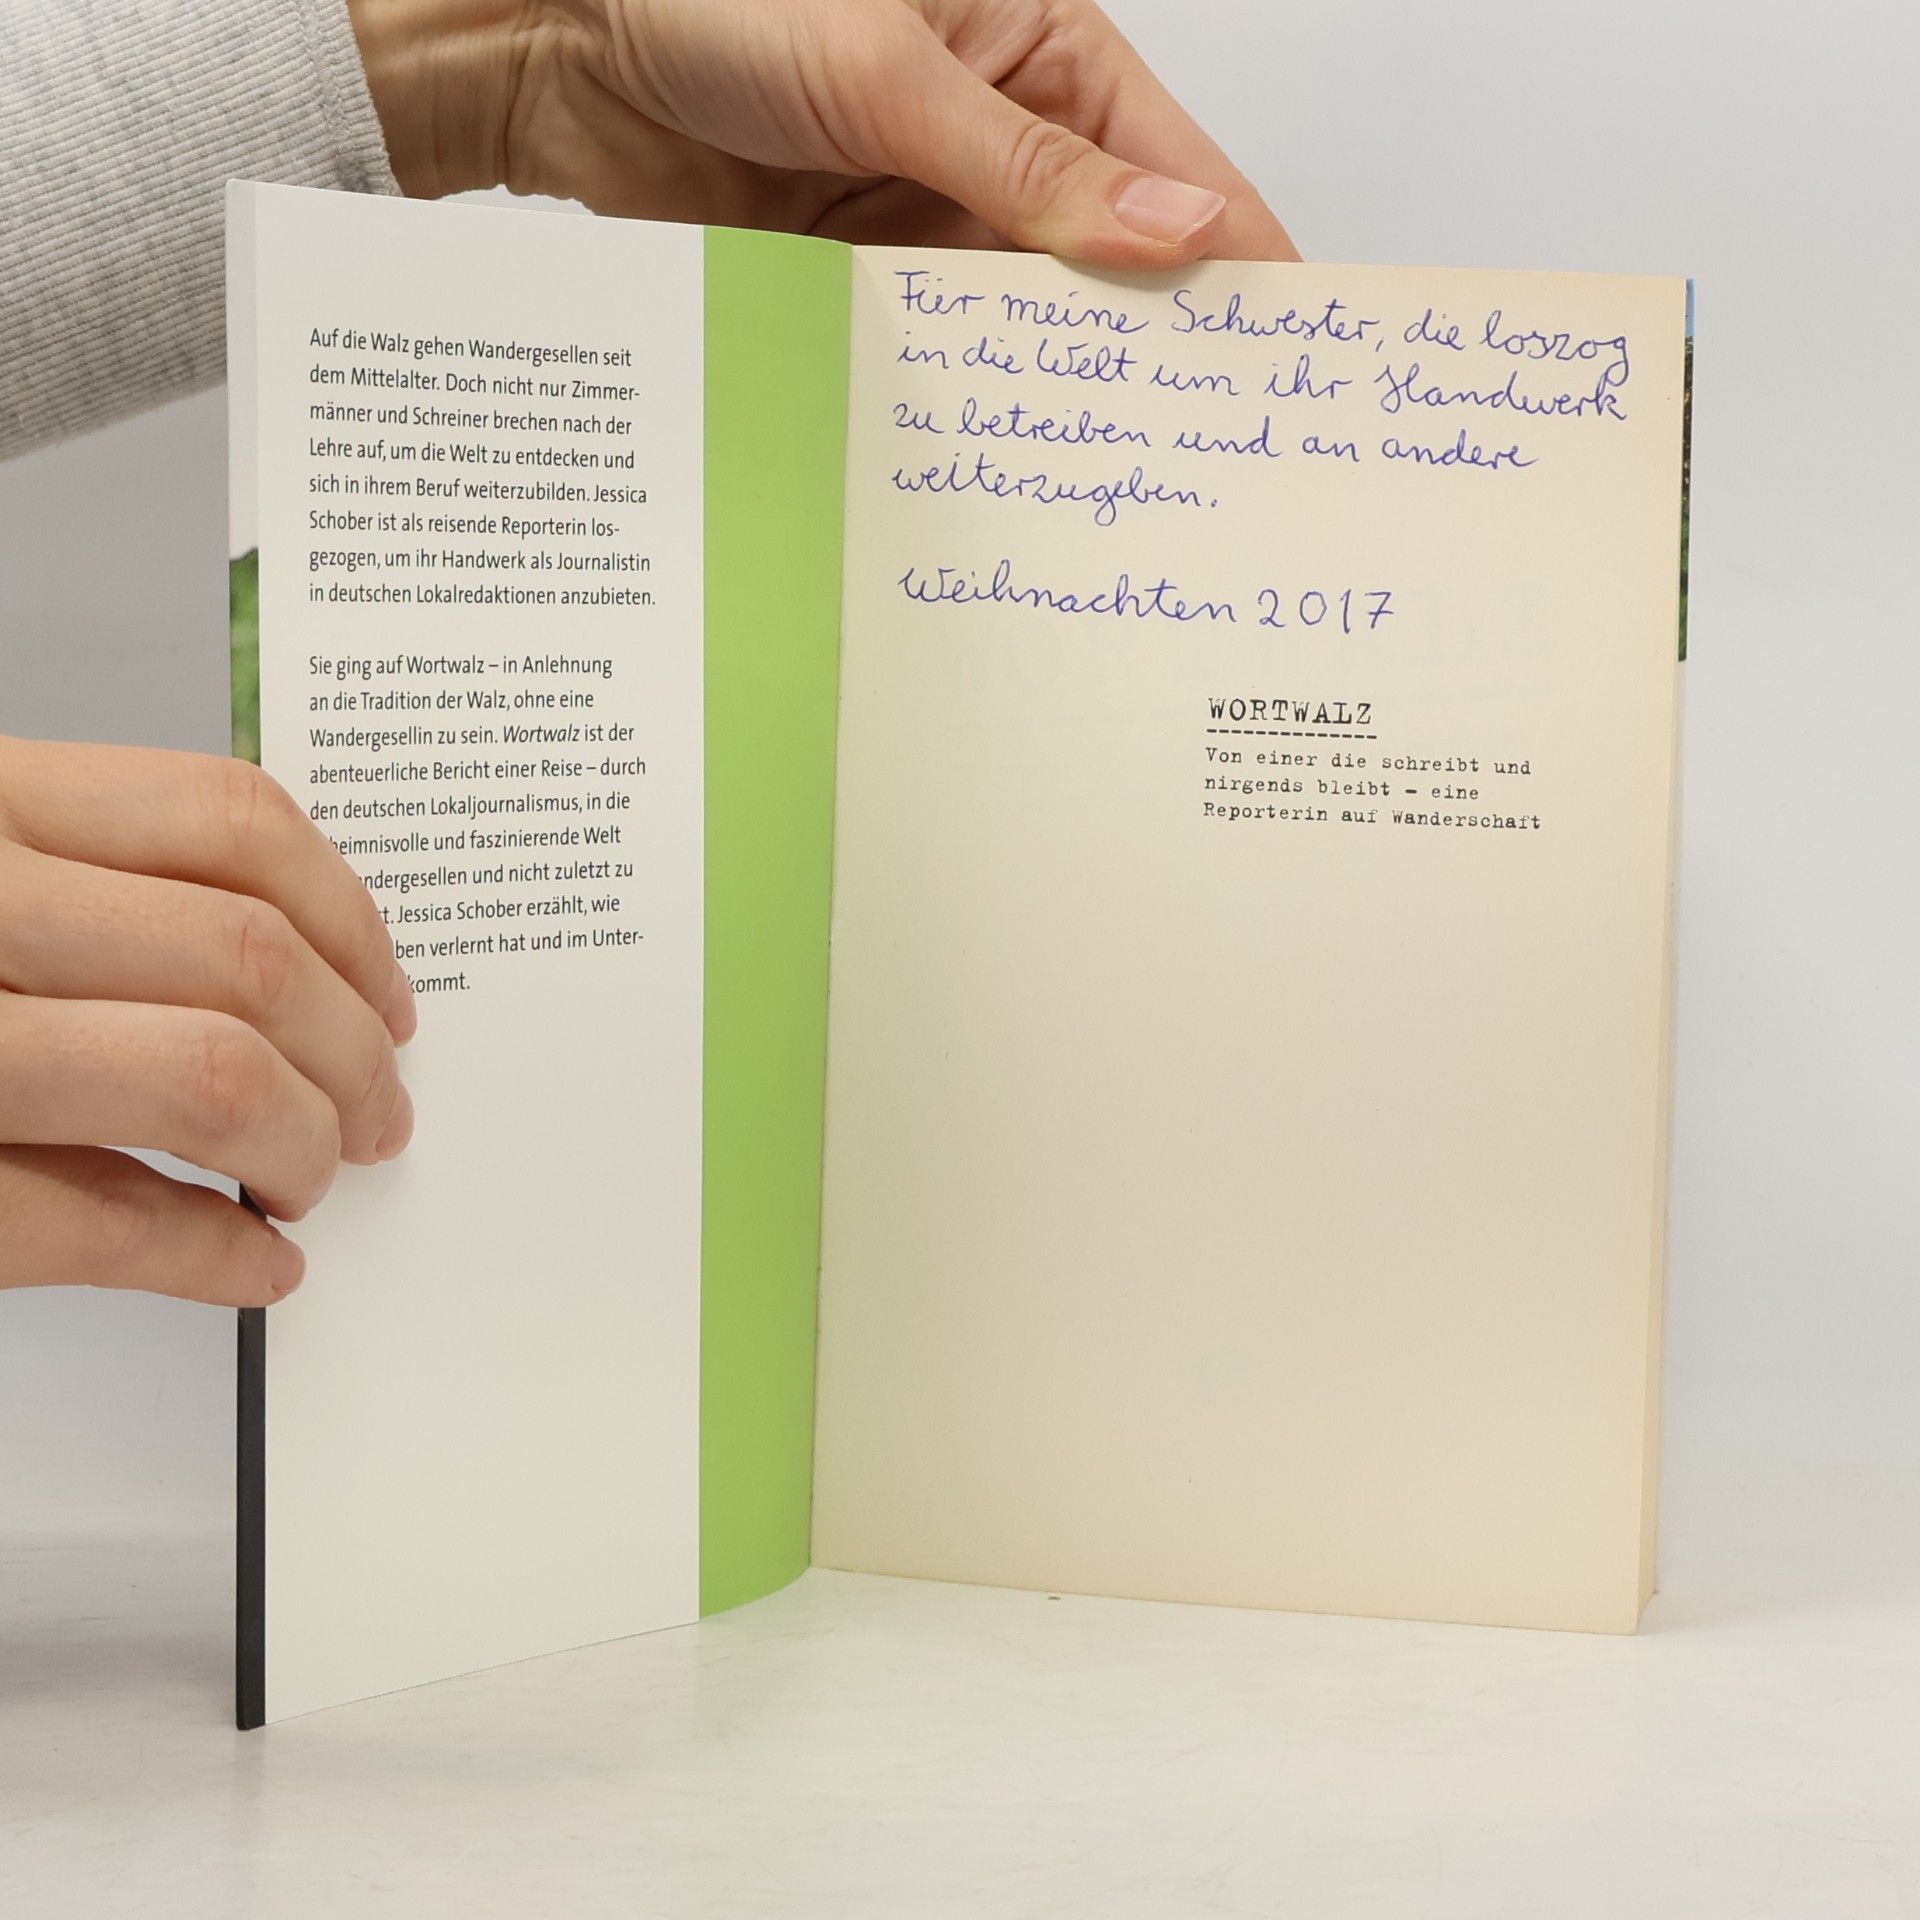 Auf die Walz gehen Wandergesellen seit
dem Mittelalter. Doch nicht nur Zimmer-
männer und Schreiner brechen nach der
Lehre auf, um die Welt zu entdecken und
sich in ihrem Beruf weiterzubilden. Jessica
Schober ist als reisende Reporterin los-
gezogen, um ihr Handwerk als Journalistin
in deutschen Lokalredaktionen anzubieten.
Sie ging auf Wortwalz – in Anlehnung
an die Tradition der Walz, ohne eine
Wandergesellin zu sein. Wortwalz ist der
abenteuerliche Bericht einer Reise – durch
den deutschen Lokaljournalismus, in die
und faszinierende Welt
und nicht zuletzt zu
Jessica Schober erzählt, wie
verlernt hat und im Unter-
Für meine Schwester, die loszog
in die Welt um ihr Handwerk
zu betreiben und an andere
weiterzugeben.
Weihnachten 2017
WORTWALZ
Von einer die schreibt und
nirgends bleibt – eine
Reporterin auf Wanderschaft